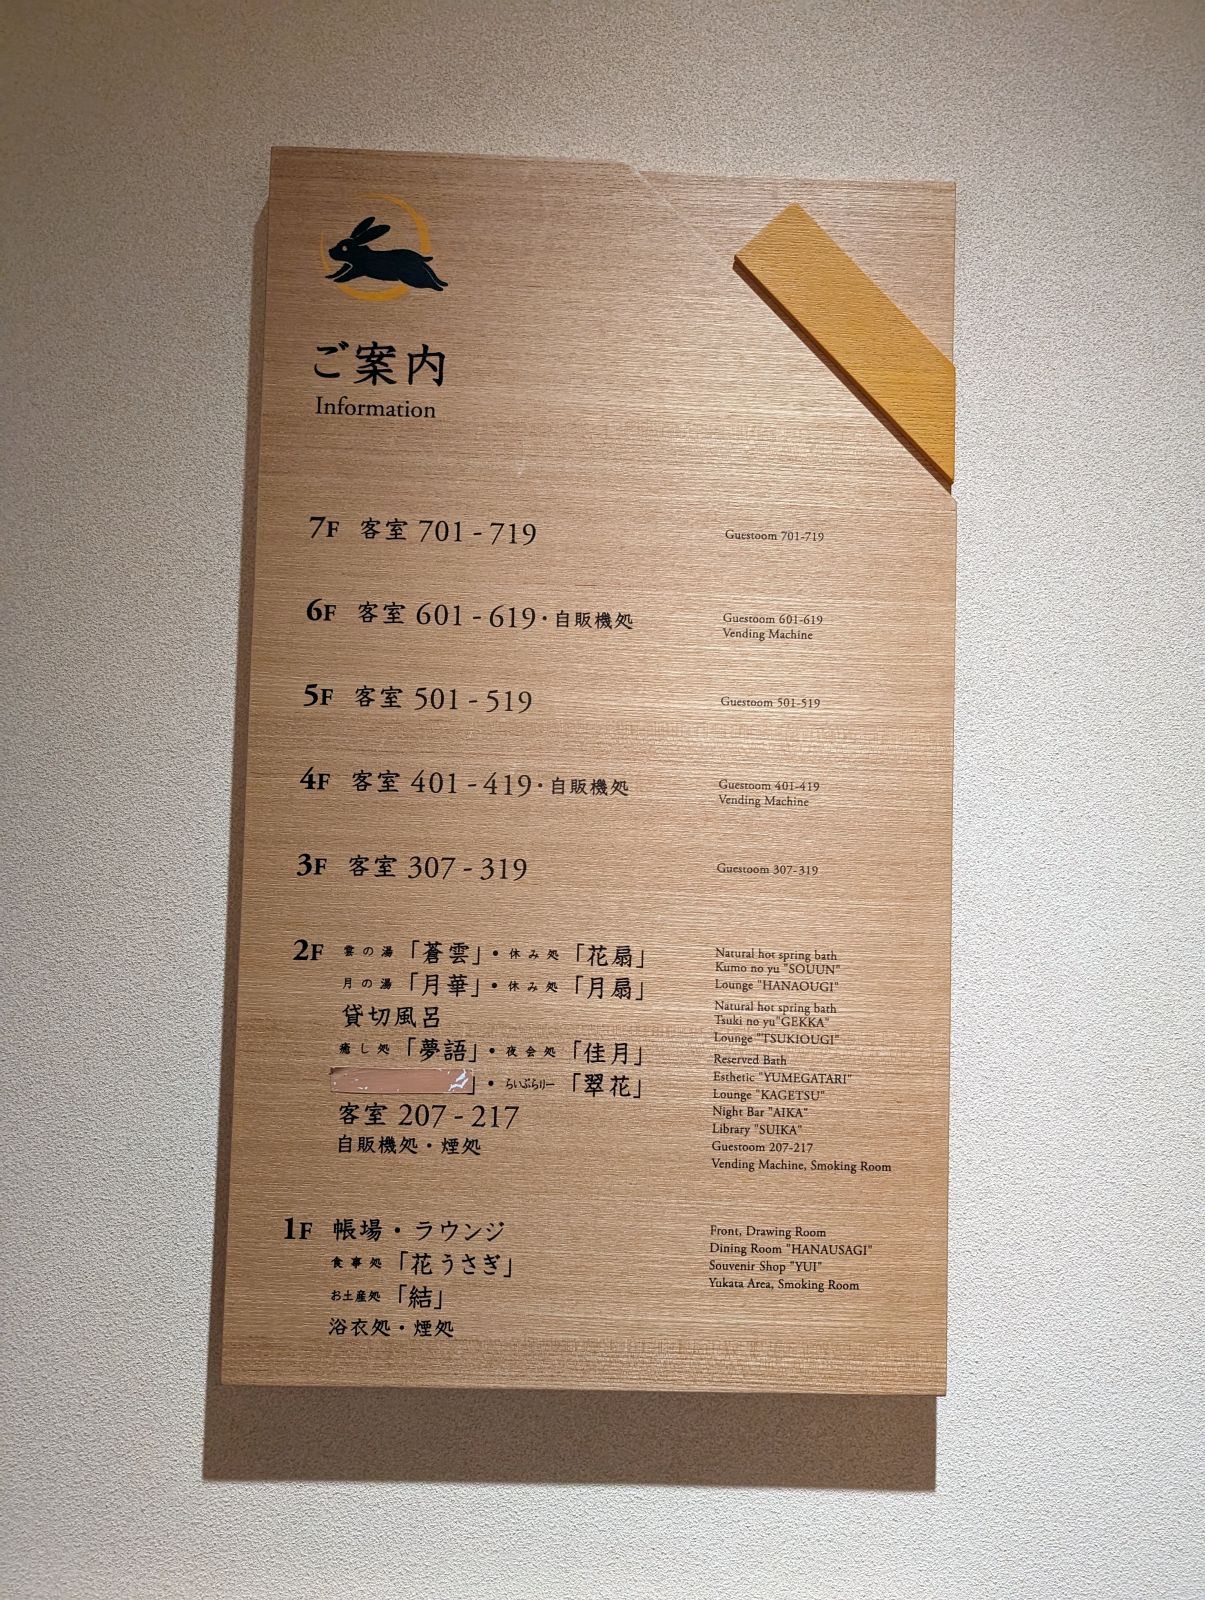 ご案内
Information
7F 客室 701 - 719
Guestoom 701-719
6F 客室 601 - 619・自販機処
Guestoom 601-619
Vending Machine
5F 客室 501 - 519
Guestoom 501-519
4F 客室 401 - 419・自販機処
Guestoom 401-419
Vending Machine
3F 客室 307 - 319
Guestoom 307-319
2F 雲の湯「蒼雲」・休み処「花扇」
月の湯「月華」・休み処「月扇」
貸切風呂
癒し処「夢語」・夜会処「佳月」
」・らいぶらりー「翠花」
客室 207 - 217
自販機処・煙処
Natural hot spring bath
Kumo no yu "SOUUN"
Lounge "HANAOUGI"
Natural hot spring bath
Tsuki no yu"GEKKA"
Lounge "TSUKIOUGI"
Reserved Bath
Esthetic "YUMEGATARI"
Lounge "KAGETSU"
Night Bar "AIKA"
Library "SUIKA"
Guestoom 207-217
Vending Machine, Smoking Room
1F 帳場・ラウンジ
食事処「花うさぎ」
お土産処「結」
浴衣処・煙処
Front, Drawing Room
Dining Room "HANAUSAGI"
Souvenir Shop "YUI"
Yukata Area, Smoking Room